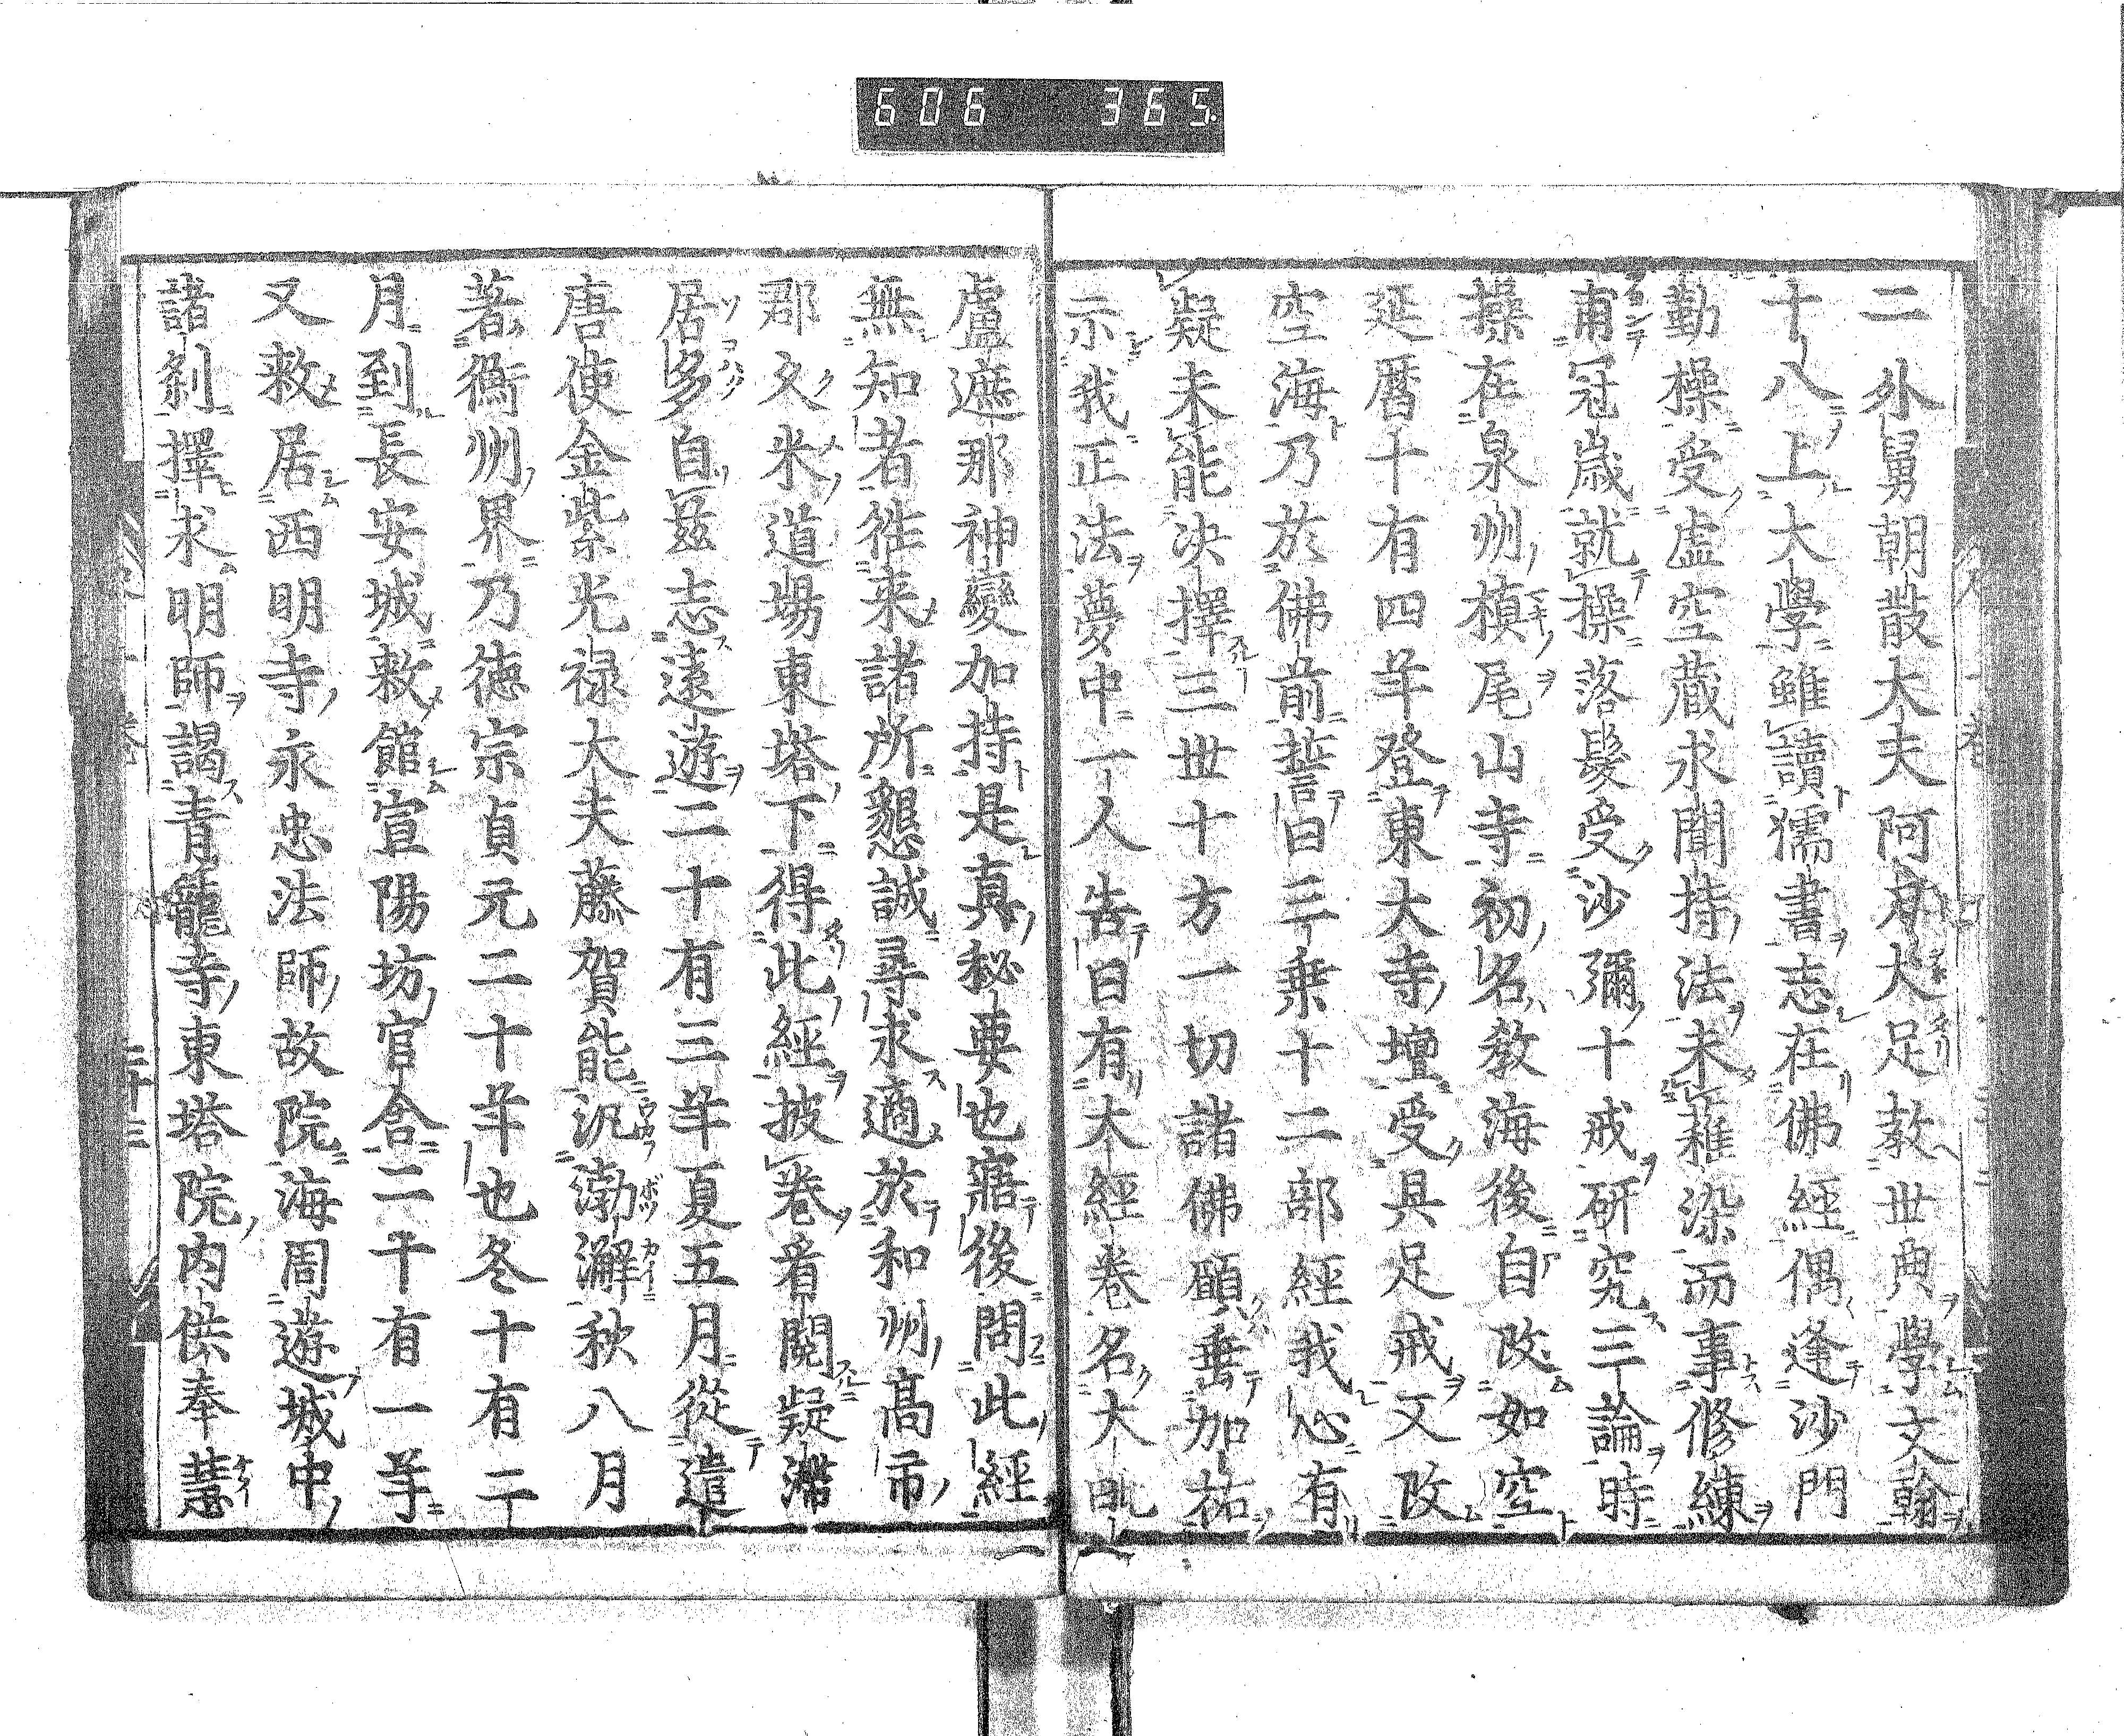 606 365
二外舅朝散大夫阿府大足教世典學文翰
十八上大學雖讀儒書志在佛經偶逢沙門
勤操受虛空藏求聞持法未薙染而事修練
甫冠歲就操落髮受沙彌十戒研究三論時
操在泉州槙尾山寺初名教海後自改如空
延曆十有四年登東大寺壇受具足戒又改
空海乃於佛前誓曰三乘十二部經我心有
疑未能決擇三世十方一切諸佛願垂加祐
示我正法夢中一人告曰有大經卷名大毗
盧遮那神變加持是真秘要也寤後問此經
無知者徃来諸所懇誠尋求適於和州高市
郡久米道場東塔下得此經披卷看閱疑滯
居多自茲志遠遊二十有三年夏五月從遣
唐使金紫光禄大夫藤賀能汎渤澥秋八月
著衡州界乃德宗貞元二十年也冬十有二
月到長安城敕館宣陽坊官舍二十有一年
又敕居西明寺永忠法師故院海周遊城中
諸刹擇求明師謁青龍寺東塔院内供奉慧